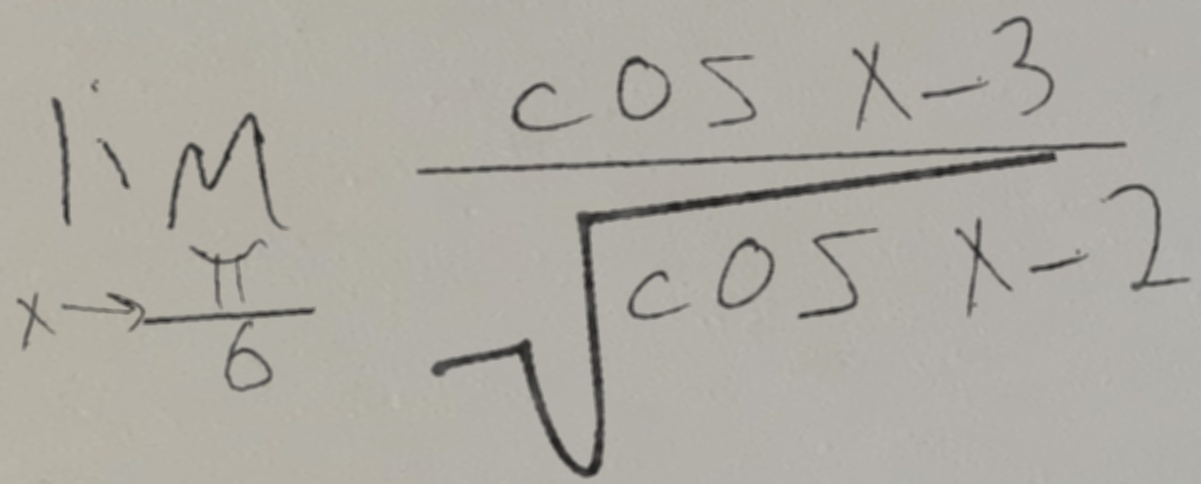 lim x→π/6 (cos x-3)/(√cos x-2)